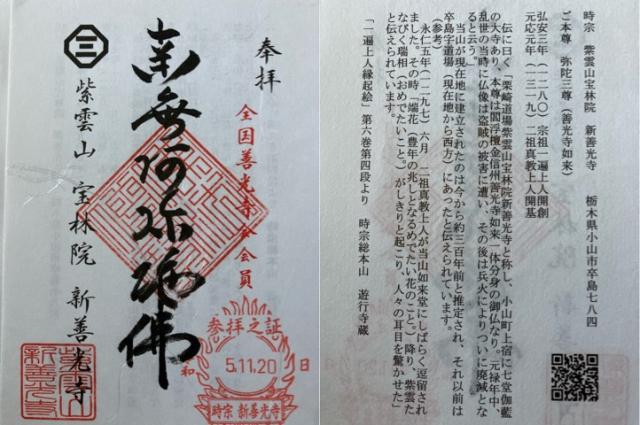 奉拝
全国善光寺会会員
南無阿弥陀佛
紫雲山 宝林院 新善光寺
参拝之証
5.11.20
和
日
時宗 新善光寺
時宗 紫雲山宝林院 新善光寺 栃木県小山市卒島七八四
ご本尊 弥陀三尊（善光寺如来）
弘安三年（一二八〇）宗祖一遍上人開創
元応元年（一三一九）二祖真教上人開基
伝に曰く「栗崎道場紫雲山宝林院新善光寺と称し、小山町上宿に七堂伽藍
の大寺あり、本尊は閻浮檀金信州善光寺如来一体分身の御仏なり。元禄年中、
乱世の当時に仏像は盗賊の被害に遭い、その後は兵火によりついに廃滅とな
ると云う。」
当山が現在地に建立されたのは今から約三百年前と推定され、それ以前は
卒島字道場（現在地から西方）にあったと伝えられています。
（参考）
永仁五年（一二九七）六月 二祖真教上人が当山如来堂にしばらく逗留され
ました。その時、端花（豊年の兆しとなるめでたい花のこと。）降り、紫雲た
なびく瑞相（おめでたいこと。）がしきりと起こり、人々の耳目を驚かせた」
と伝えられています。
「一遍上人縁起絵」第六巻第四段より 時宗総本山 遊行寺蔵